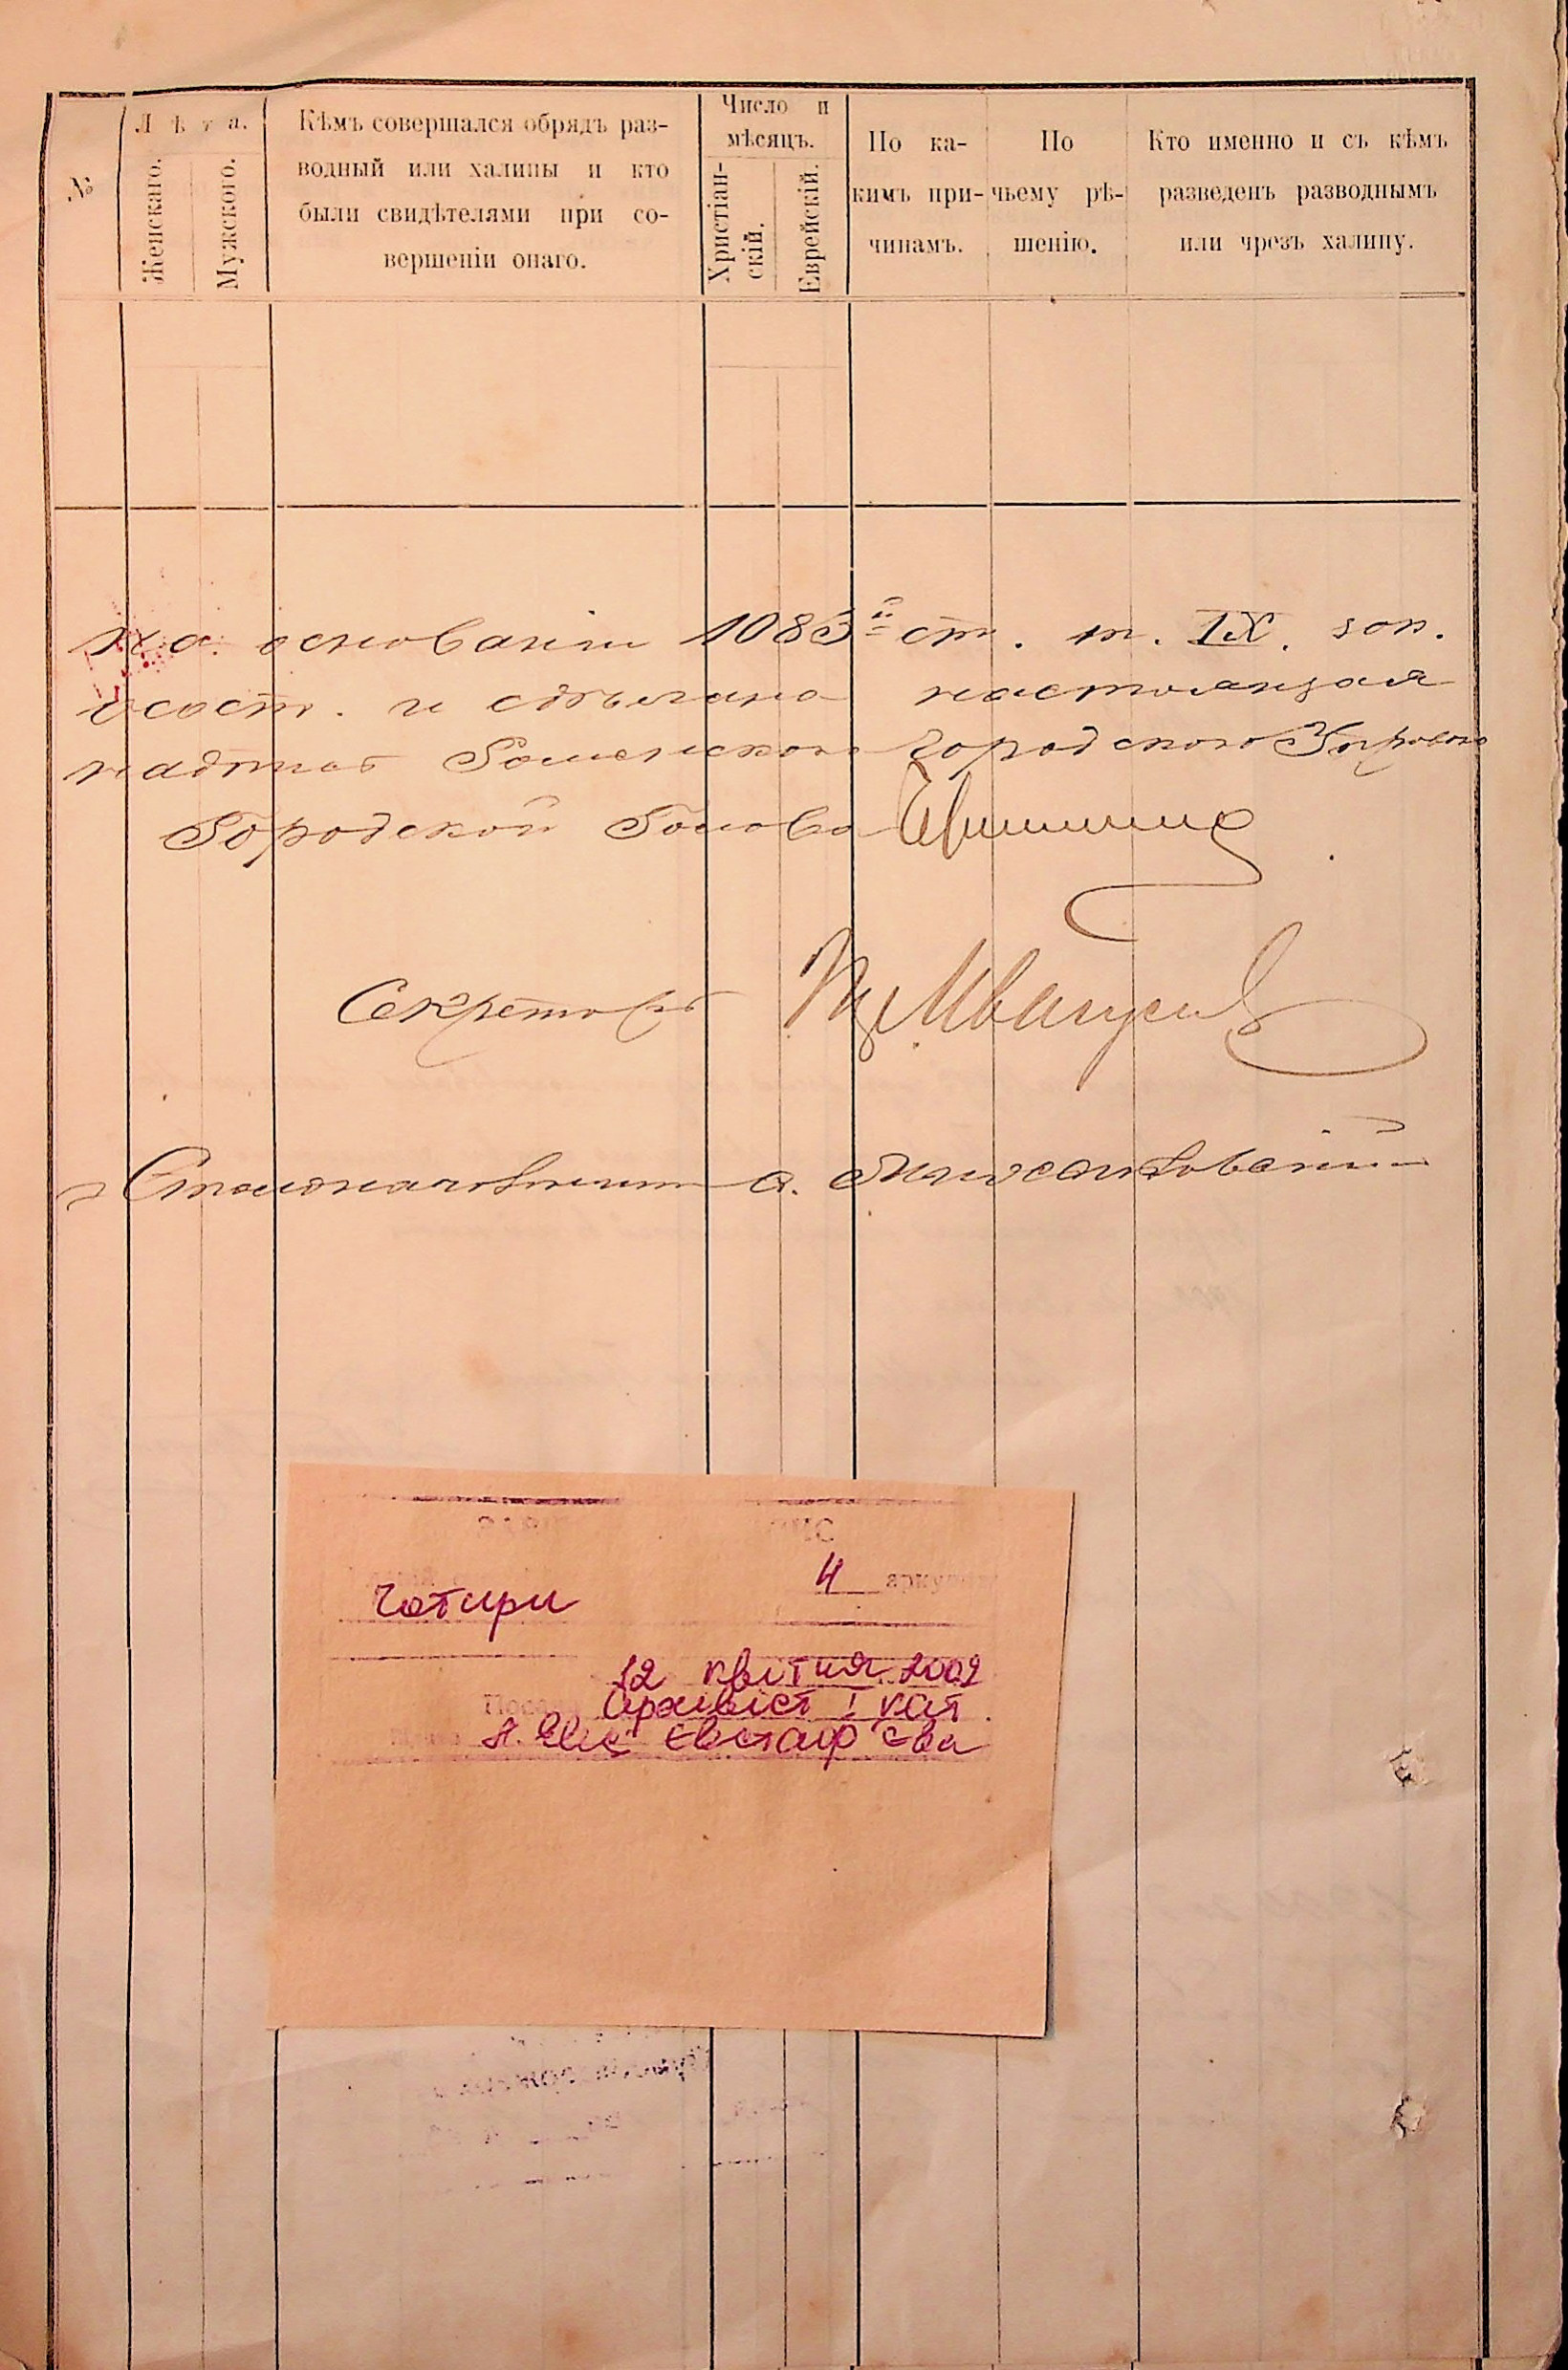 №
Лѣта.
Женскаго.
Мужскаго.
Кѣмъ совершался обрядъ раз-
водный или халицы и кто
были свидѣтелями при со-
вершеніи онаго.
Число и
мѣсяцъ.
Христіан-
скій.
Еврейскій.
По ка-
кимъ при-
чинамъ.
По
чьему рѣ-
шенію.
Кто именно и съ кѣмъ
разведенъ разводнымъ
или чрезъ халицу.
На основаніи 1083й ст. т. IX. зак.
о сост. и сдѣлана настоящая
надпись Роменскою Городскою Управою
Городской Голова
Секретарь
4 аркуш
Чотири
12 квітня 2002
Посада Архівіст I кат.
Євстаф'єва